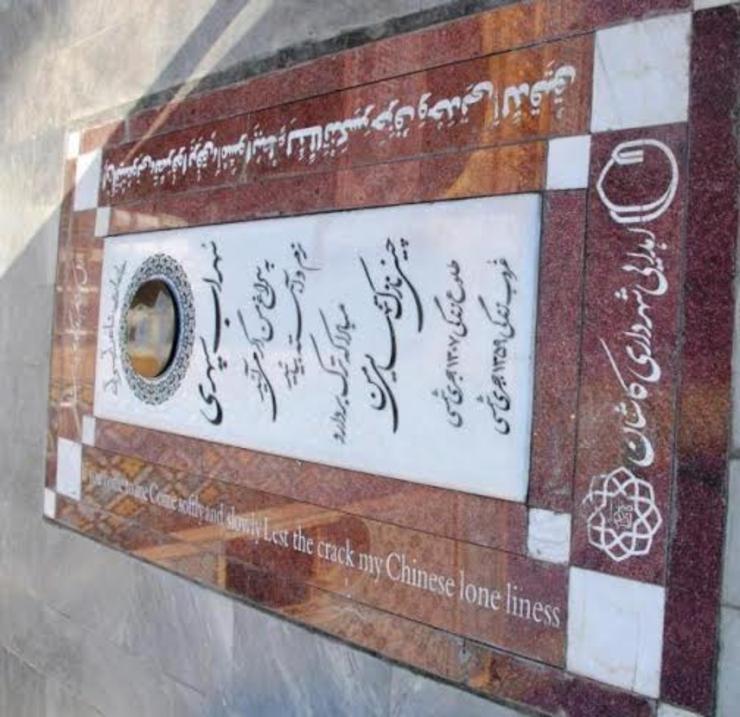 سهراب سپهری
به سراغ من اگر می آیید
نرم و آهسته بیایید
مبادا که ترک بردارد
چینی نازک تنهایی من
طلوع زندگی ۱۳۰۷ هجری شمسی
غروب زندگی ۱۳۵۹ هجری شمسی
لئلا تنكسر خزف وحدتي
come to me Come softly and slowly Lest the crack my Chinese lone liness
اهدایی شهرداری کاشان